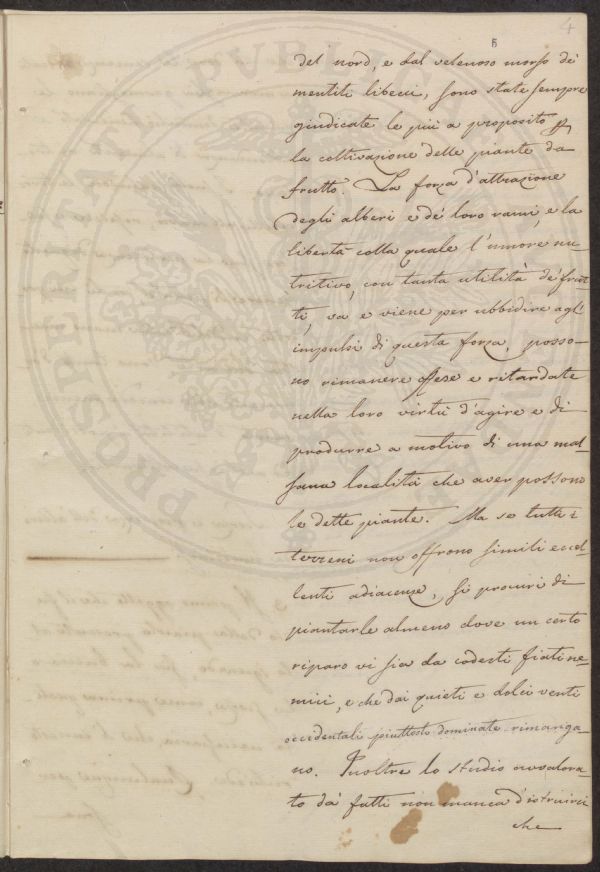 4
5
del nord, e dal velenoso morso de'
mentiti libecci, sono state sempre
giudicate le più a proposito p
la coltivazione delle piante da
frutto. La forza d'attrazione
degli alberi e de' loro rami, e la
libertà colla quale l'umore nu-
tritivo, con tanta utilità de' frut-
ti, va e viene per ubbidire agl'
impulsi di questa forza, posso-
no rimanere offese e ritardate
nella loro virtù d'agire e di
produrre a motivo di una mal-
sana località che aver possono
le dette piante. Ma se tutti i
terreni non offrono simili eccel-
lenti adiacenze, si procuri di
piantarle almeno dove un certo
riparo vi sia da codesti fiati ne-
mici, e che dai quieti e dolci venti
occidentali piuttosto dominate rimanga-
no. Inoltre lo studio avvalora-
to da' fatti non manca d'istruirci
che
PROSPERITATI PUBLICAE